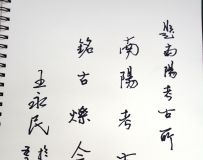 题南陽考古所
南陽考古
銘古爍今
王永民